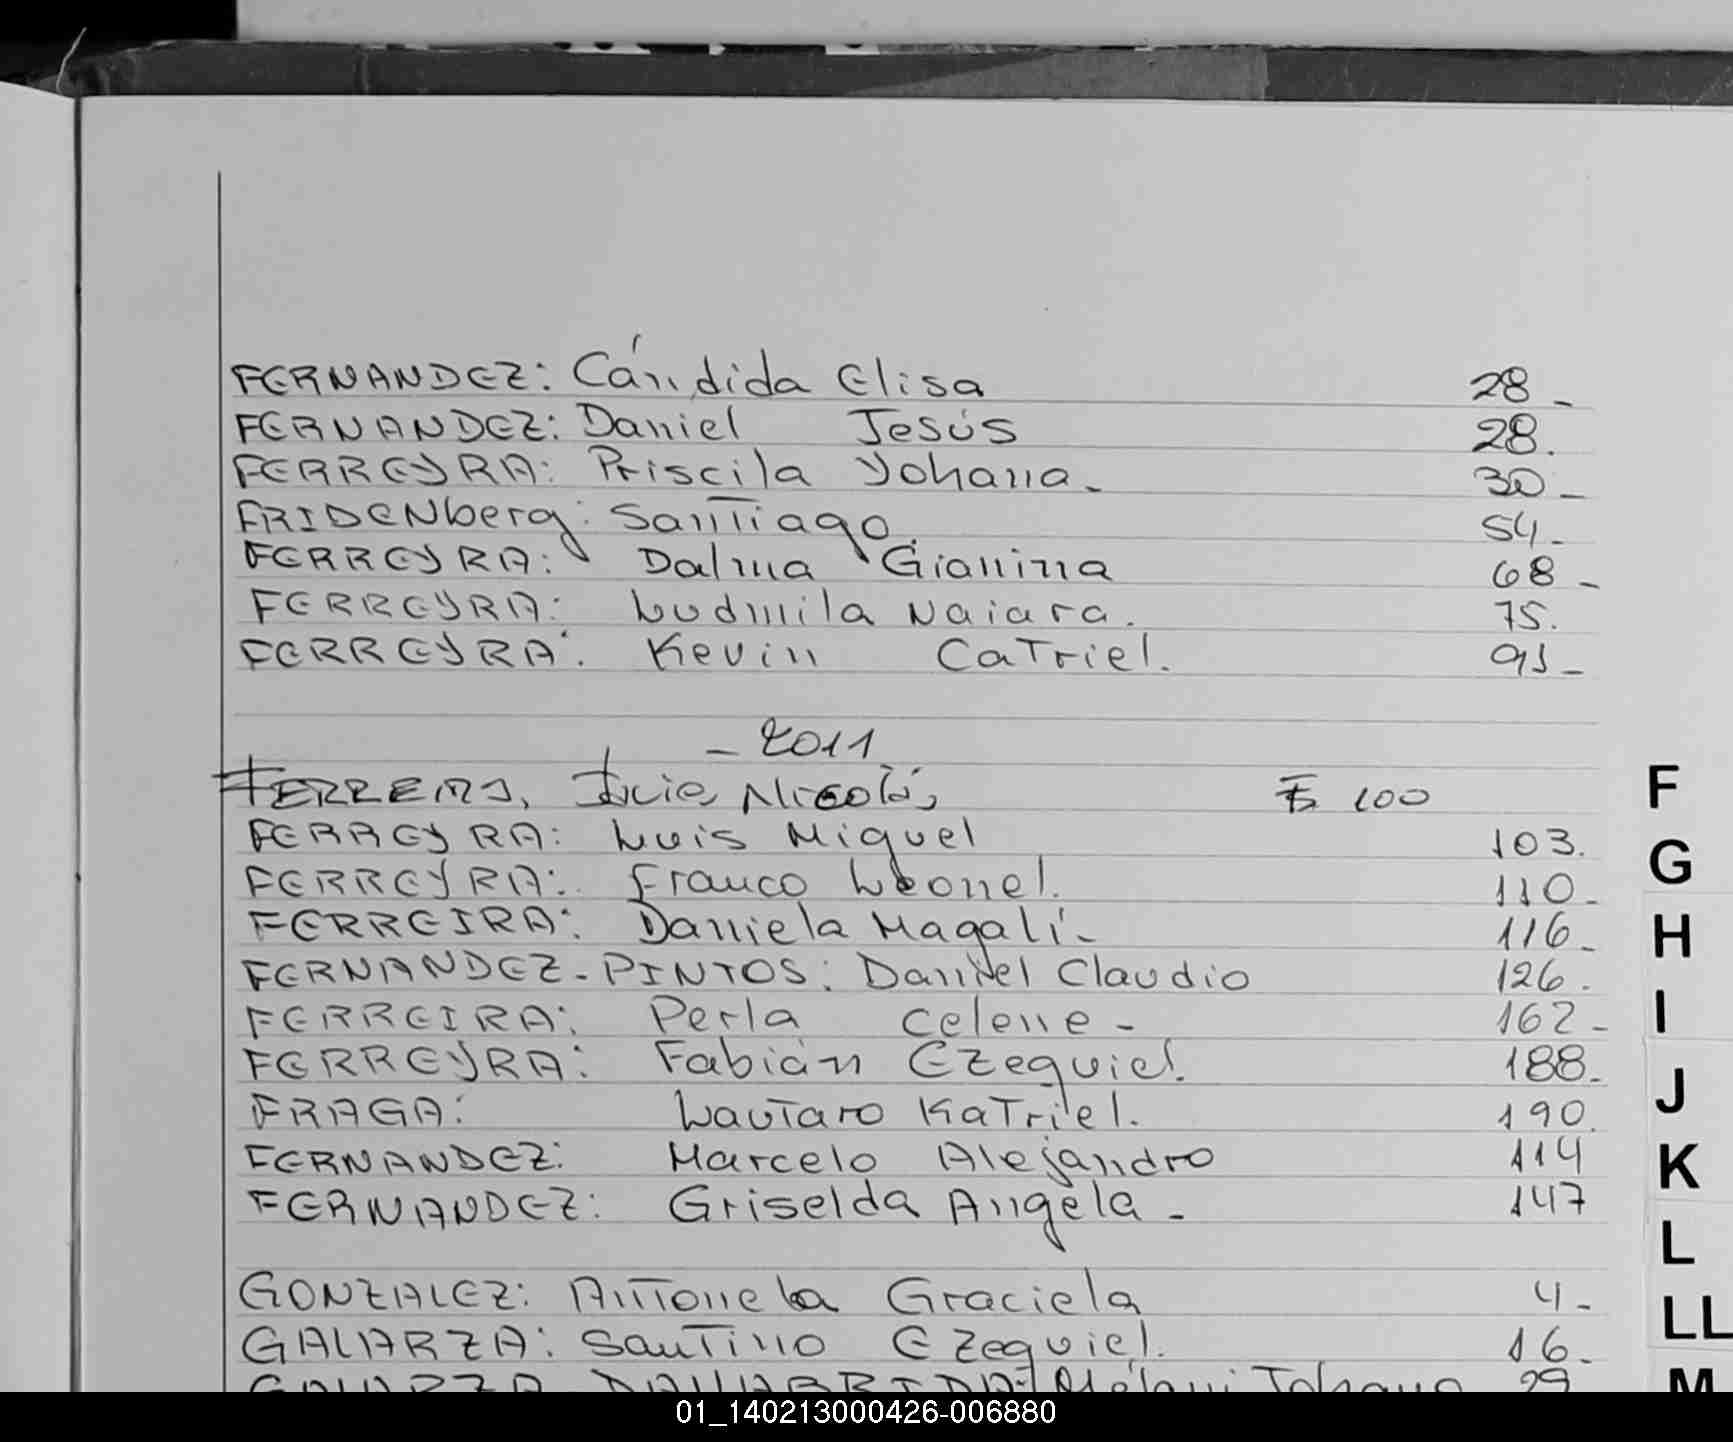 FERNANDEZ: Cándida Elisa 28-
FERNANDEZ: Daniel Jesús 28.
FERREYRA: Priscila Yohana- 30-
FRIDENberg: Santiago. 54-
FERREYRA: Dalma Gianina 68-
FERREYRA: Ludmila Naiara. 75.
FERREYRA: Kevin Catriel. 91-
-2011
Nicolás, Fº 100
FERREYRA: Luis Miguel 103.
FERREYRA: Franco Leonel. 110-
FERREIRA: Daniela Magalí- 116-
FERNANDEZ-PINTOS: Daniel Claudio 126.
FERREIRA: Perla Celene- 162-
FERREYRA: Fabián Ezequiel. 188-
FRAGA: Lautaro Katriel. 190.
FERNANDEZ: Marcelo Alejandro 114
FERNANDEZ: Griselda Angela- 147
GONZALEZ: Antonela Graciela 4-
GALARZA: Santino Ezequiel. 16-
GALARZA Johana 29
F
G
H
I
J
K
L
LL
M
01_140213000426-006880